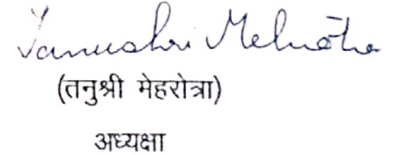 Tanushri Mehrotra
(तनुश्री मेहरोत्रा)
अध्यक्षा